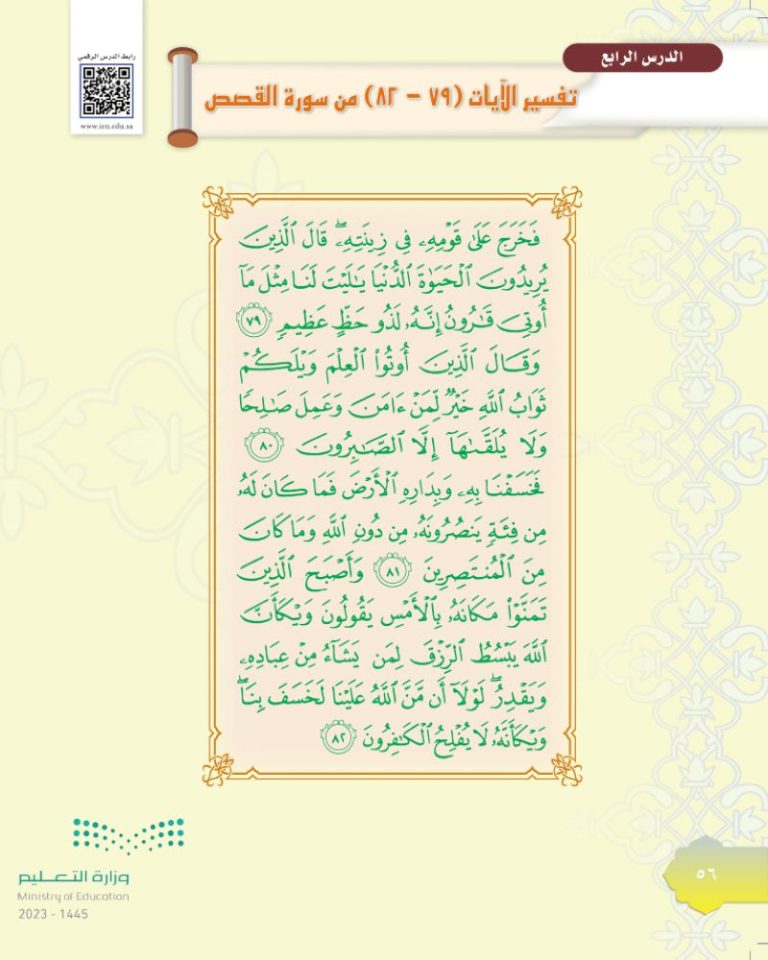 رابط الدرس الرقمي
www.ien.edu.sa
الدرس الرابع
تفسير الآيات (٧٩ – ٨٢) من سورة القصص
فَخَرَجَ عَلَىٰ قَوْمِهِۦ فِى زِينَتِهِۦۖ قَالَ ٱلَّذِينَ
يُرِيدُونَ ٱلْحَيَوٰةَ ٱلدُّنْيَا يَـٰلَيْتَ لَنَا مِثْلَ مَآ
أُوتِىَ قَـٰرُونُ إِنَّهُۥ لَذُو حَظٍّ عَظِيمٍ ٧٩
وَقَالَ ٱلَّذِينَ أُوتُوا۟ ٱلْعِلْمَ وَيْلَكُمْ
ثَوَابُ ٱللَّهِ خَيْرٌ لِّمَنْ ءَامَنَ وَعَمِلَ صَـٰلِحًا
وَلَا يُلَقَّىٰهَآ إِلَّا ٱلصَّـٰبِرُونَ ٨٠
فَخَسَفْنَا بِهِۦ وَبِدَارِهِ ٱلْأَرْضَ فَمَا كَانَ لَهُۥ
مِن فِئَةٍ يَنصُرُونَهُۥ مِن دُونِ ٱللَّهِ وَمَا كَانَ
مِنَ ٱلْمُنتَصِرِينَ ٨١ وَأَصْبَحَ ٱلَّذِينَ
تَمَنَّوْا۟ مَكَانَهُۥ بِٱلْأَمْسِ يَقُولُونَ وَيْكَأَنَّ
ٱللَّهَ يَبْسُطُ ٱلرِّزْقَ لِمَن يَشَآءُ مِنْ عِبَادِهِۦ
وَيَقْدِرُۖ لَوْلَآ أَن مَّنَّ ٱللَّهُ عَلَيْنَا لَخَسَفَ بِنَاۖ
وَيْكَأَنَّهُۥ لَا يُفْلِحُ ٱلْكَـٰفِرُونَ ٨٢
وزارة التعليم
Ministry of Education
2023 - 1445
٥٦